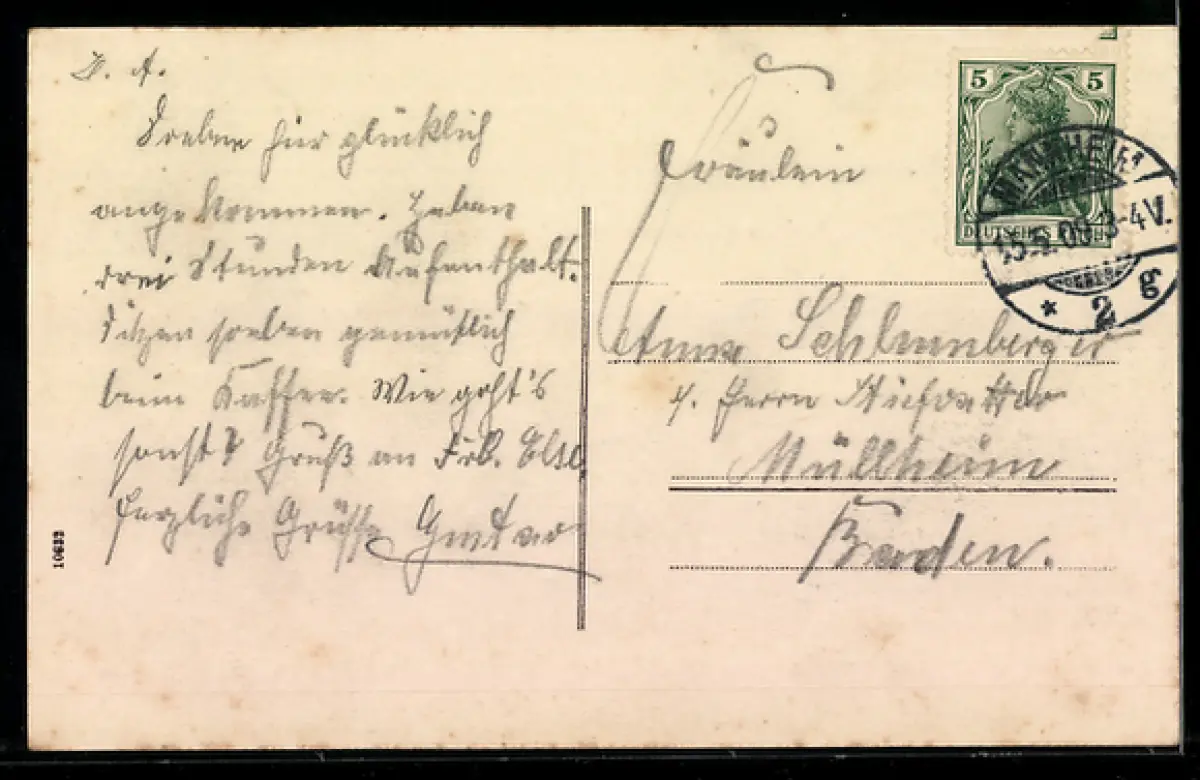 L. A.
Soeben hier glücklich
angekommen. Haben
drei Stunden Aufenthalt.
Sitzen soeben gemütlich
beim Kaffee. Wie geht's
sonst? Gruß an Frl. Else
Herzliche Grüsse Gustav
10633
Fräulein
Anna Schlumberger
Herrn
Müllheim
Baden.
5 5
DEUTSCHES REICH
MANNHEIM
3-4V.
* 2 g